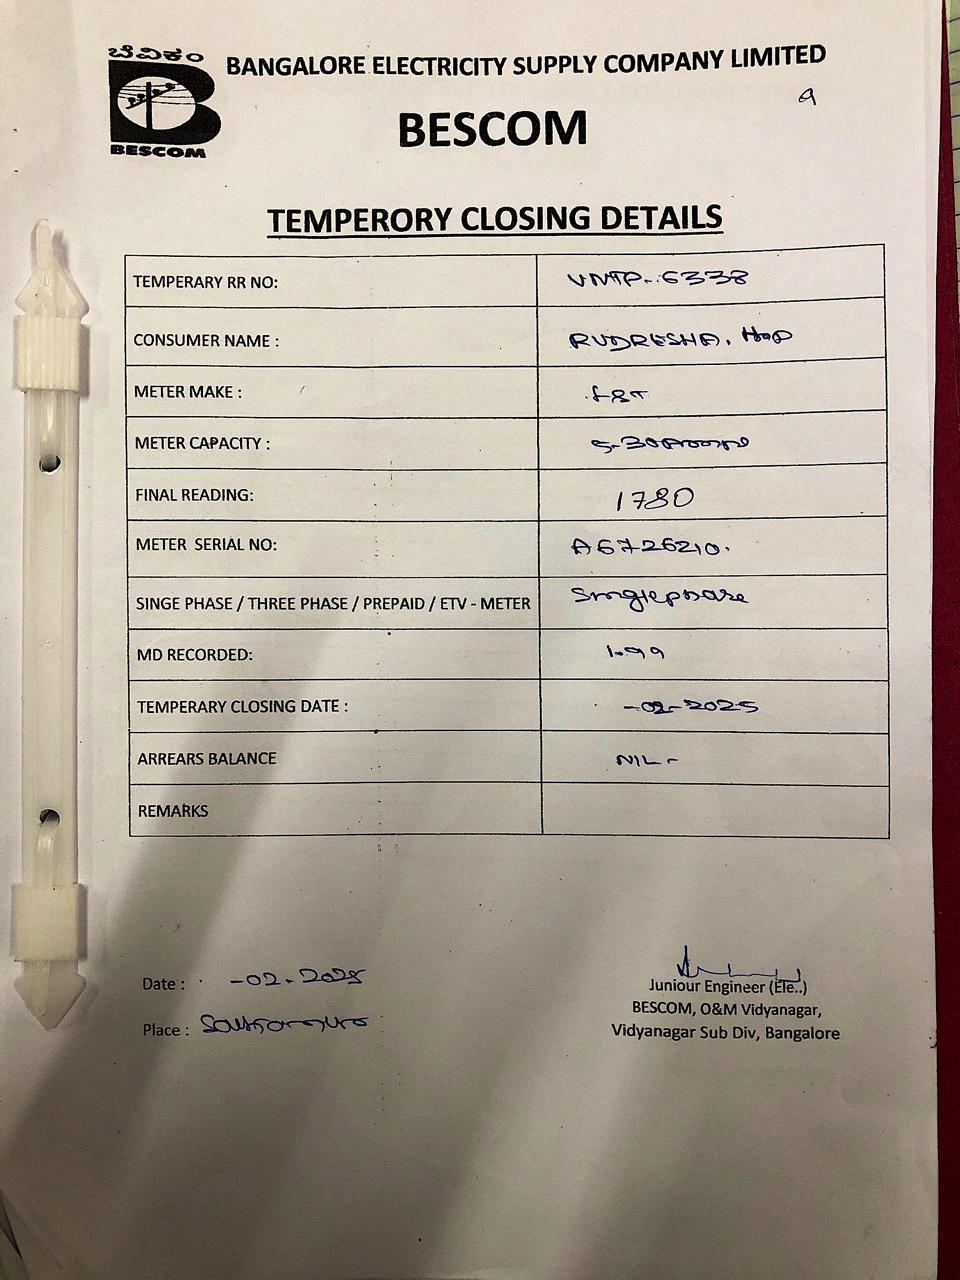 ಬೆವಿಕಂ
BESCOM
BANGALORE ELECTRICITY SUPPLY COMPANY LIMITED
BESCOM
TEMPERORY CLOSING DETAILS
TEMPERARY RR NO: VNTP-6338
CONSUMER NAME : RUDRESHA.
METER MAKE : L&T
METER CAPACITY : 5-30Amps
FINAL READING: 1780
METER SERIAL NO: A6726210.
SINGE PHASE / THREE PHASE / PREPAID / ETV - METER Singlephase
MD RECORDED: 1.99
TEMPERARY CLOSING DATE : -02-2025
ARREARS BALANCE NIL-
REMARKS
Date : -02-2025
Place :
Juniour Engineer (Ele..)
BESCOM, O&M Vidyanagar,
Vidyanagar Sub Div, Bangalore